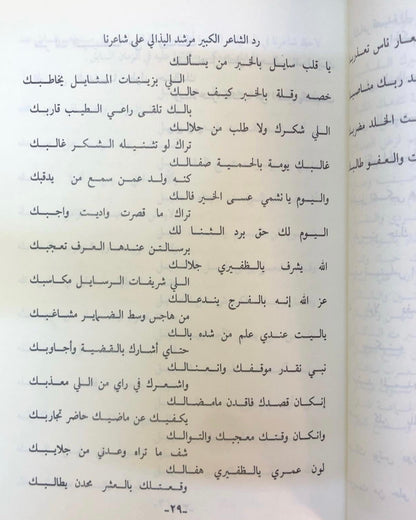 رد الشاعر الكبير مرشد البذالي على شاعرنا
يا قلب سايل بالخبر من يسألك
اللي بزينات المثايل يخاطبك
خصه وقلة بالخبر كيف حالك
بالك تلقى راعي الطيب قاربك
اللي شكرك ولا طلب من حلالك
تراك لو تثنيله الشكر غالبك
غالبك يومة بالحمية صفالك
كنه ولد عمن سمع من يدقبك
واليوم يا نشمي عسى الخير فالك
تراك ما قصرت واديت واجبك
اليوم لك حق برد الثنا لك
برسالتن عندها العرف تعجبك
الله يشرف يالظفيري جلالك
اللي شريفات الرسايل مكاسبك
عز الله إنه بالفرج يندعالك
من هاجس وسط الضماير مشاغبك
ياليت عندي علم من شده بالك
حتاي أشارك بالقضية وأجاوبك
نبي نقدر موقفك وانعنالك
واشعرك في راي من اللي معذبك
إنكان قصدك فاقدن مامضالك
يكفيك عن ماضيك حاضر تجاربك
وانكان وقتك معجبك والتوالك
شف ما تراه وعدني من جلايبك
لون عمري يالظفيري هفالك
وقعتلك بالعشر محدن يطالبك
-٢٩-